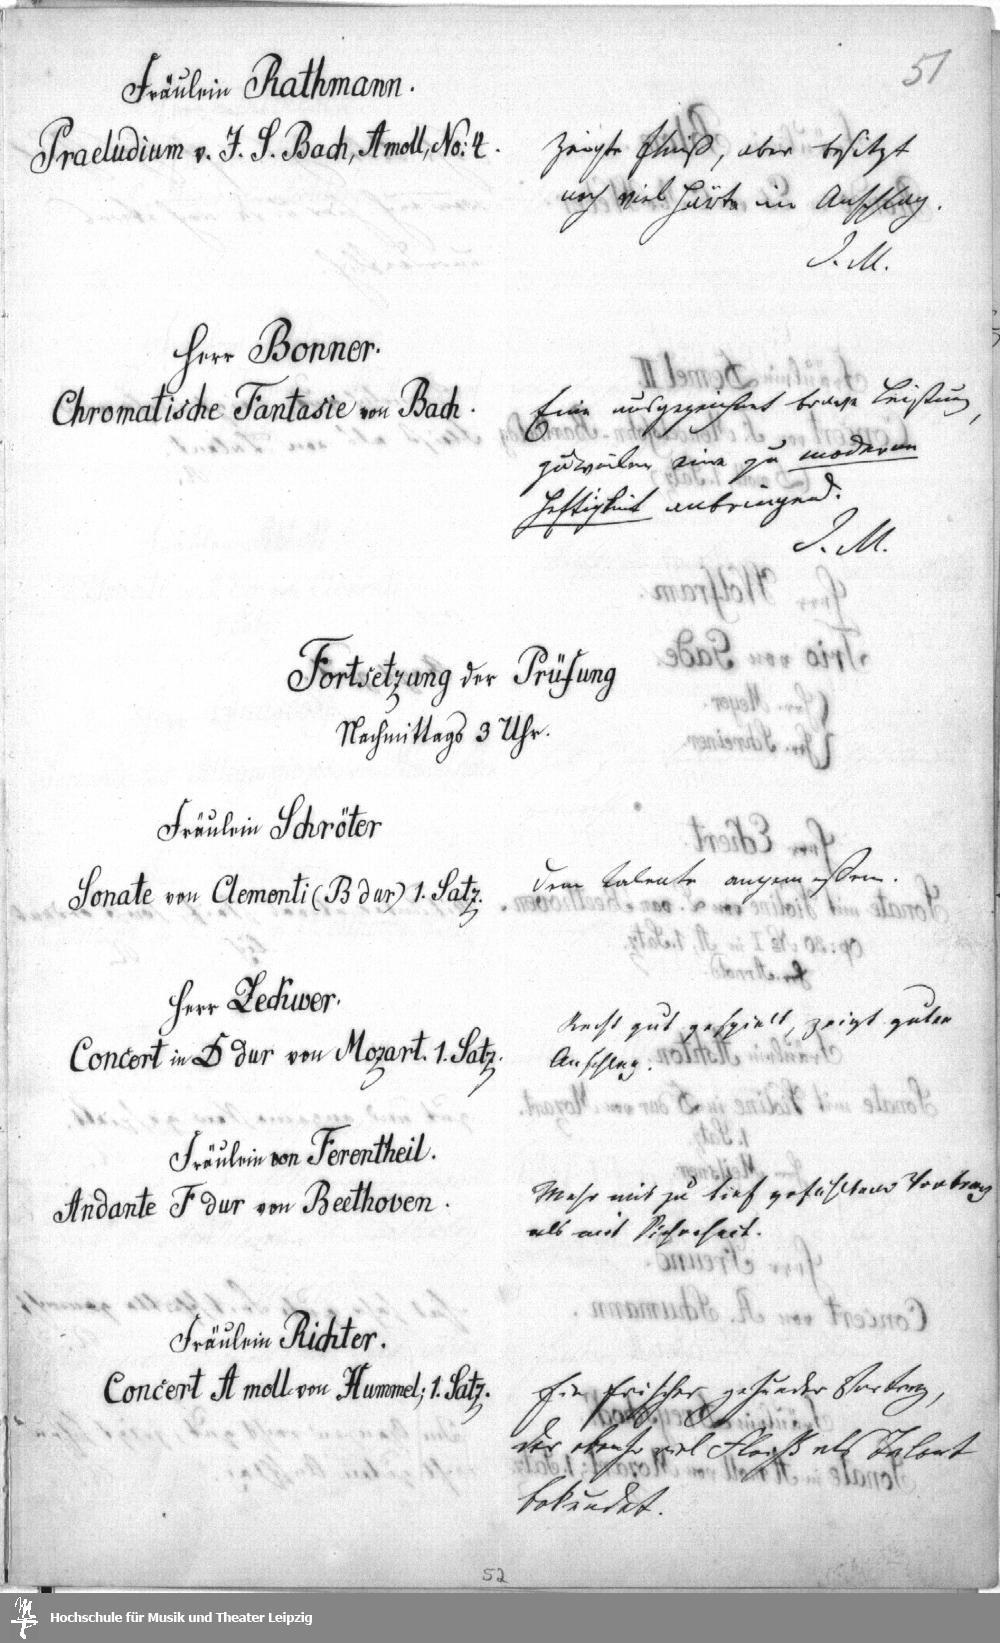 51
Fräulein Rathmann.
Praeludium v. J. S. Bach, A moll, No: 4.
zeigte Fleiß, aber besitzt
noch viel Härte im Anschlag.
I. M.
Herr Bonner.
Chromatische Fantasie von Bach.
Eine ausgezeichnet brave Leistung,
zuweilen eine zu moderne
Heftigkeit anbringend.
I. M.
Fortsetzung der Prüfung
Nachmittags 3 Uhr.
Fräulein Schröter
Sonate von Clementi (B dur) 1. Satz.
Dem Talente angemessen.
Herr Zeckwer.
Concert in D dur von Mozart. 1. Satz.
Recht gut gespielt, zeigt guten
Anschlag.
Fräulein von Ferentheil.
Andante F dur von Beethoven.
Mehr mit zu tief gefühltem Vortrag
als mit Sicherheit.
Fräulein Richter.
Concert A moll von Hummel; 1. Satz.
Ein frischer gesunder Vortrag,
der ebenso viel Fleiß als Talent
bekundet.
52
Hochschule für Musik und Theater Leipzig